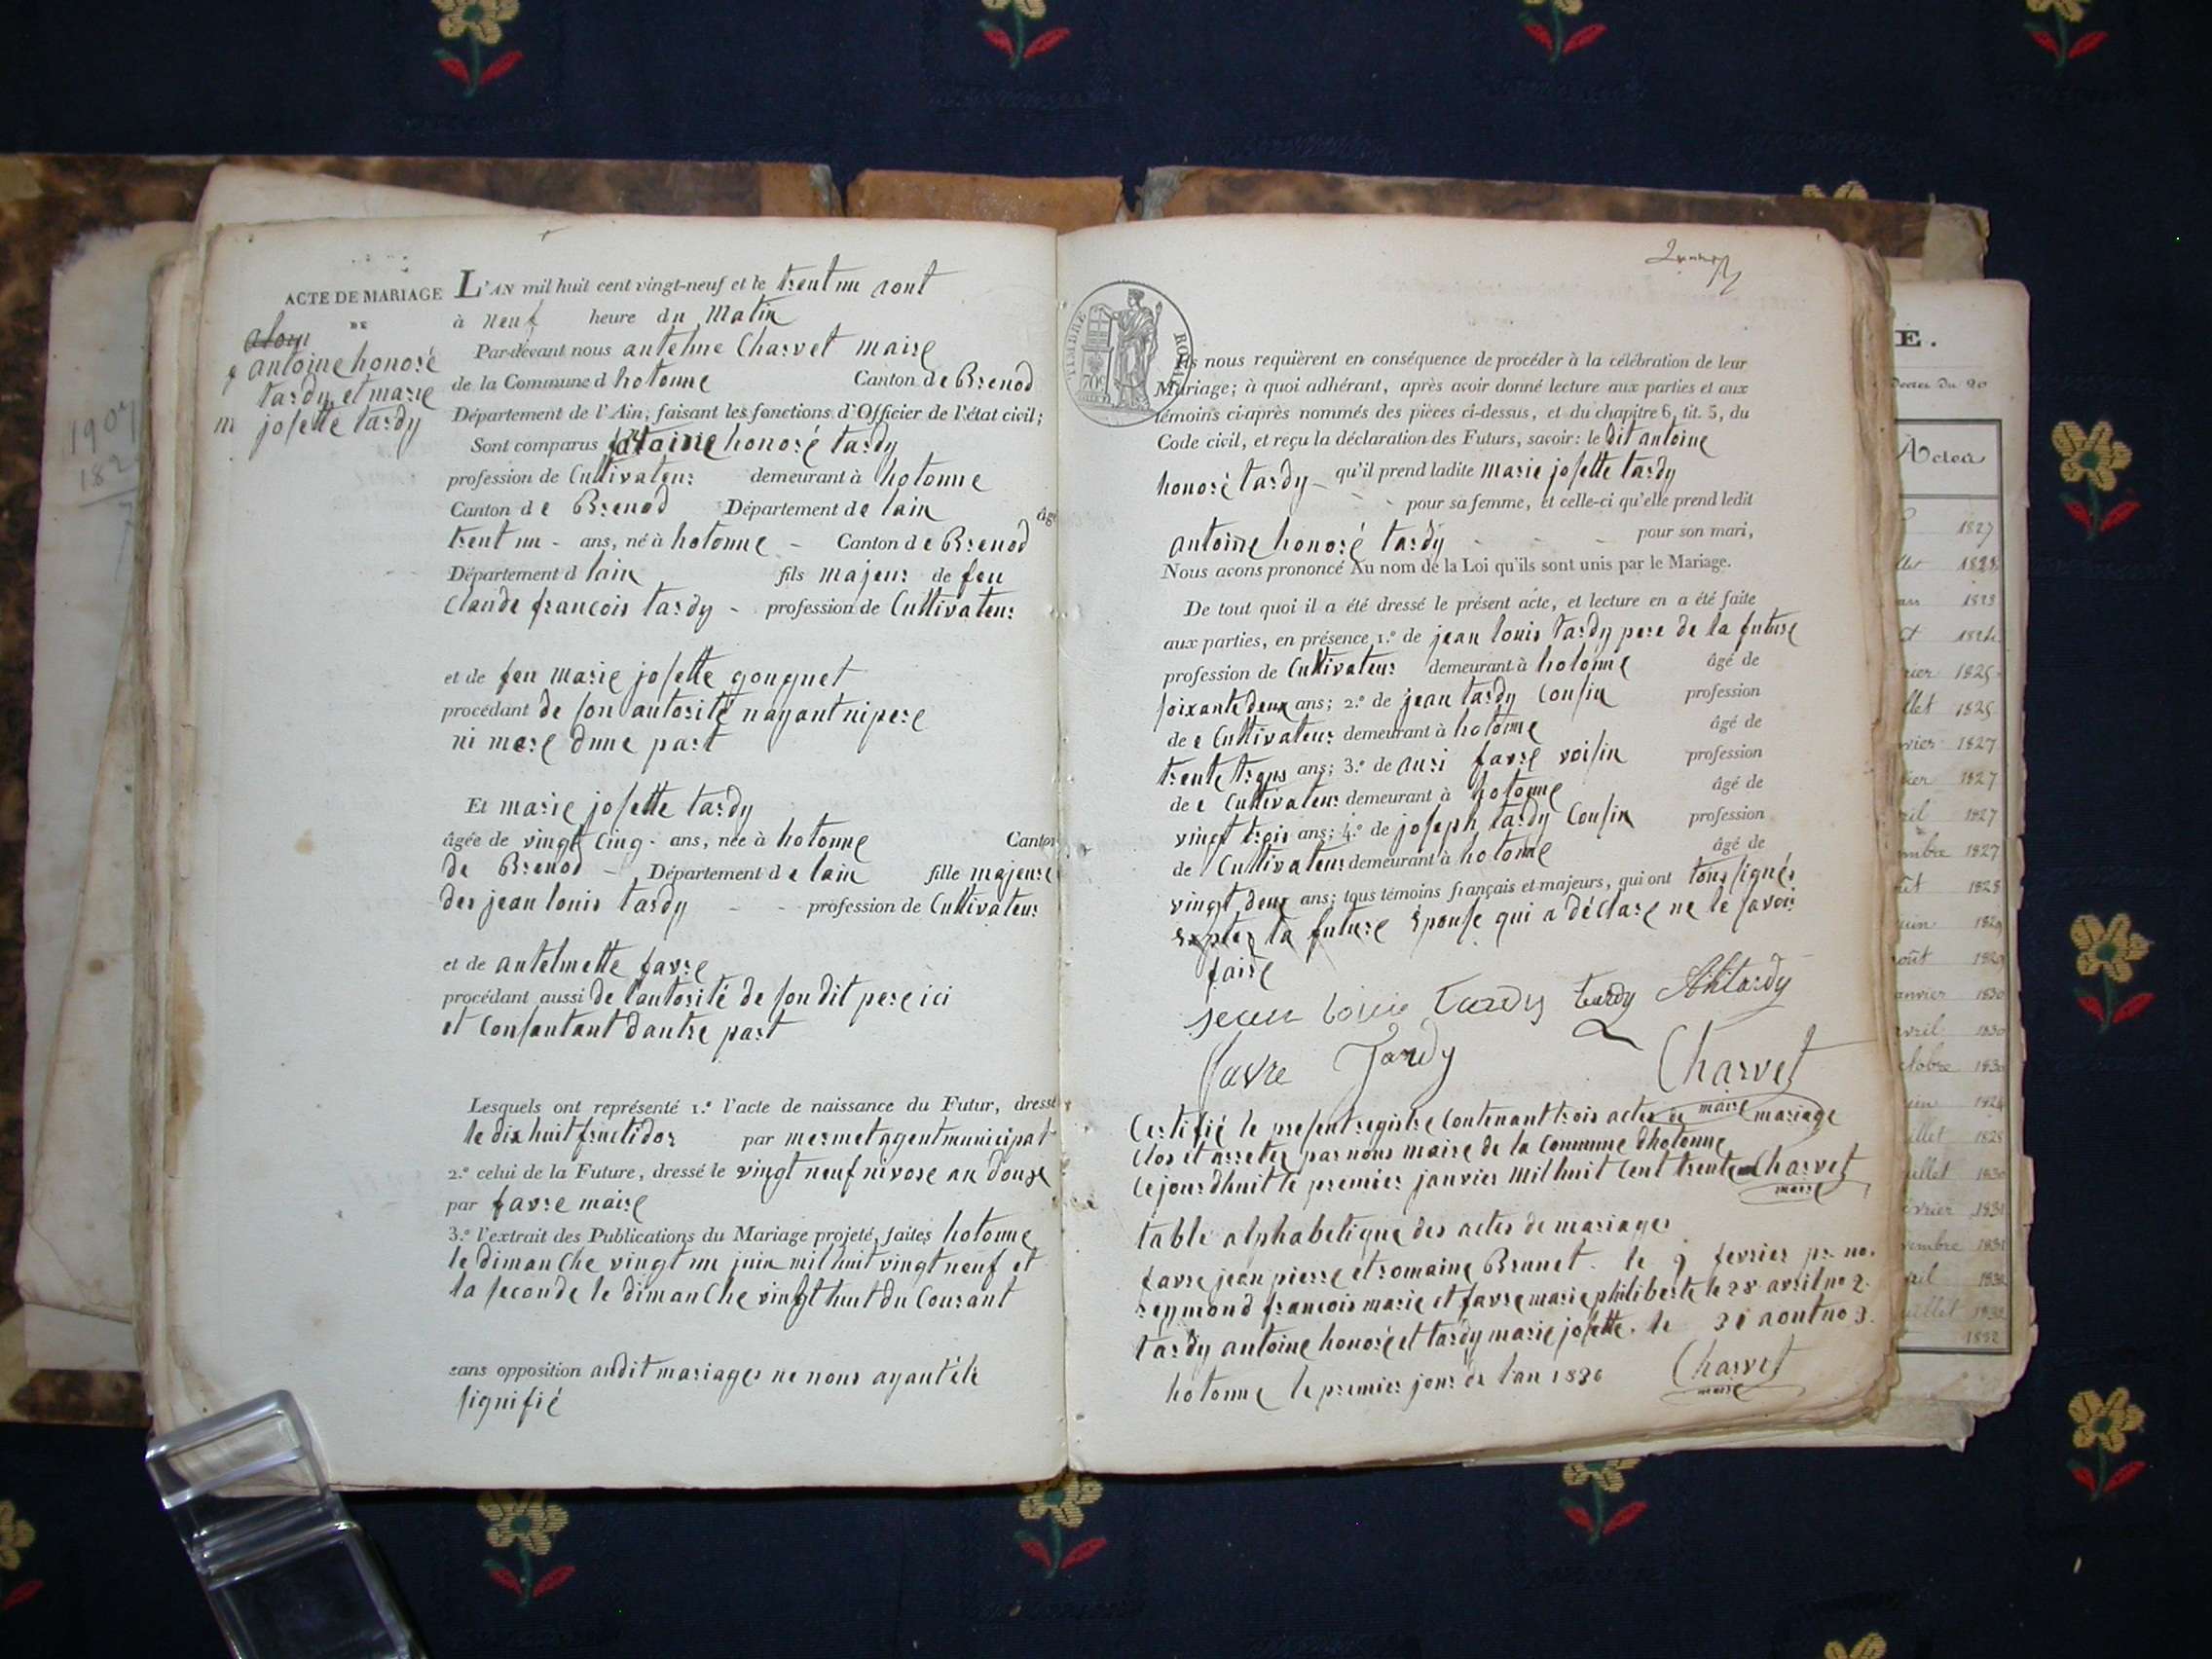 ACTE DE MARIAGE
DE
antoine honoré
tardy et marie
josette tardy
L'AN mil huit cent vingt-neuf et le trent un aout
à neuf heure du Matin
Par-devant nous antelme Charvet maire
de la Commune d hotonne Canton de Brenod
Département de l'Ain, faisant les fonctions d'Officier de l'état civil;
Sont comparus antoine honoré tardy
profession de Cultivateur demeurant à hotonne
Canton de Brenod Département de lain âgé
trent un - ans, né à hotonne - Canton de Brenod
Département d lain fils majeur de feu
Claude francois tardy - profession de Cultivateur
et de feu marie josette gouguet
procédant de son autorité nayant ni pere
ni mere dune part
Et marie josette tardy
âgée de vingt cinq - ans, née à hotonne Canton
de Brenod - Département de lain fille majeure
des jean louis tardy - - profession de Cultivateur
et de antelmette favre
procédant aussi de lautorité de son dit pere ici
et Consentant dautre part
Lesquels ont représenté 1.º l'acte de naissance du Futur, dressé
le dix huit fructidor par mermet agent municipal
2.º celui de la Future, dressé le vingt neuf nivose an douze
par favre maire
3.º l'extrait des Publications du Mariage projeté, faites hotonne
le dimanche vingt un juin mil huit vingt neuf et
la seconde le dimanche vingt huit du Courant
sans opposition audit mariages ne nous ayant été
signifié
TIMBRE ROYAL
70c
Ils nous requièrent en conséquence de procéder à la célébration de leur
Mariage; à quoi adhérant, après avoir donné lecture aux parties et aux
témoins ci-après nommés des pièces ci-dessus, et du chapitre 6, tit. 5, du
Code civil, et reçu la déclaration des Futurs, savoir: le dit antoine
honoré tardy - qu'il prend ladite marie josette tardy
- - pour sa femme, et celle-ci qu'elle prend ledit
antoine honoré tardy - - - pour son mari,
Nous avons prononcé Au nom de la Loi qu'ils sont unis par le Mariage.
De tout quoi il a été dressé le présent acte, et lecture en a été faite
aux parties, en présence 1.º de jean louis tardy pere de la future
profession de Cultivateur demeurant à hotonne âgé de
soixante deux ans; 2.º de jean tardy Cousin profession
de e Cultivateur demeurant à hotonne âgé de
trente troys ans; 3.º de favre voisin profession
de e Cultivateur demeurant à hotonne âgé de
vingt trois ans; 4.º de joseph tardy Cousin profession
de Cultivateur demeurant à hotonne âgé de
vingt deux ans; tous témoins français et majeurs, qui ont tous signés
la future Epouse qui a déclaré ne le savoir
faire
jean louis tardy tardy AHtardy
favre Tardy Charvet
maire
Certifié le present registre Contenant trois actes de mariage
Clos et arreter par nous maire de la Commune dhotonne
Cejourdhuit le premier janvier mil huit Cent trente Charvet
maire
table alphabetique des actes de mariages
favre jean pierre et romaine Brunet. le 9 fevrier pr. no.
reymond francois marie et favre marie philiberte le 28 avril no 2.
tardy antoine honoré et tardy marie josette. le 31 aout no 3.
hotonne le premier jour de lan 1830 Charvet
maire
E.
Actes
1827
1825
1827
1827
1827
1827
1828
1830
1830
1830
1831
1831